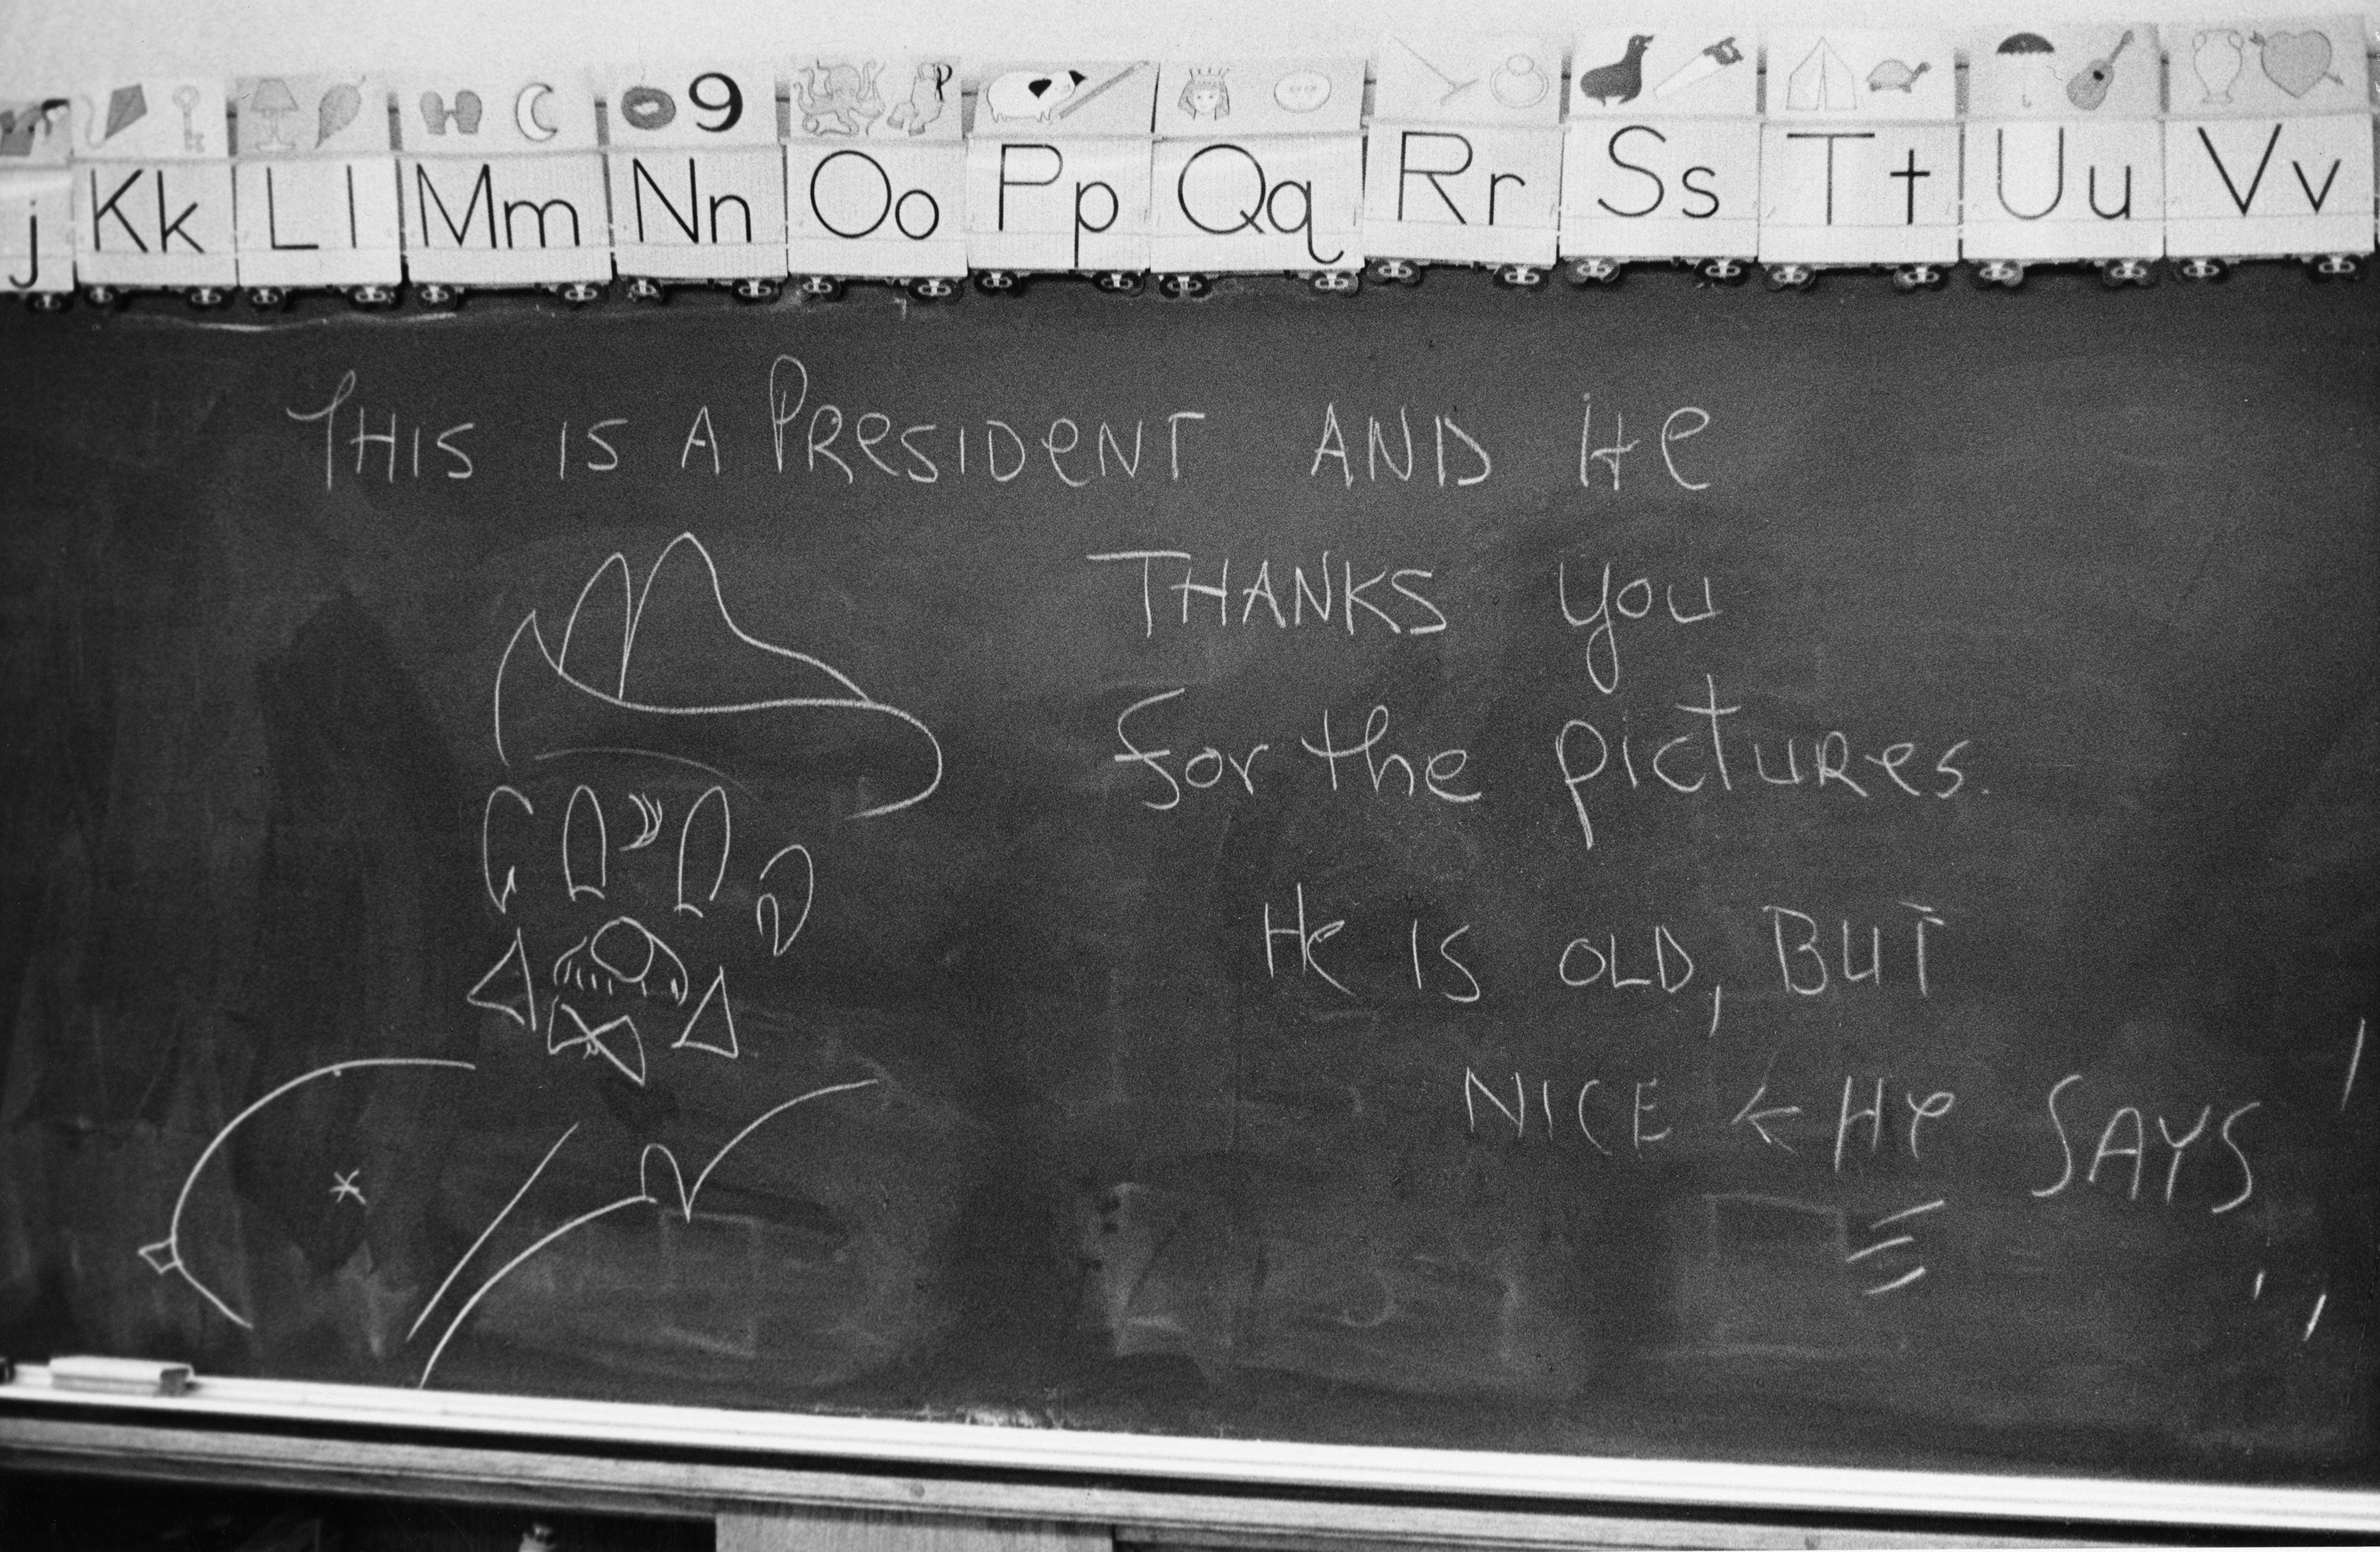 j Kk Ll Mm Nn Oo Pp Qq Rr Ss Tt Uu Vv
9
THIS IS A PRESIDENT AND He
THANKS you
for the pictures.
He IS OLD, BUT
NICE ← He SAYS